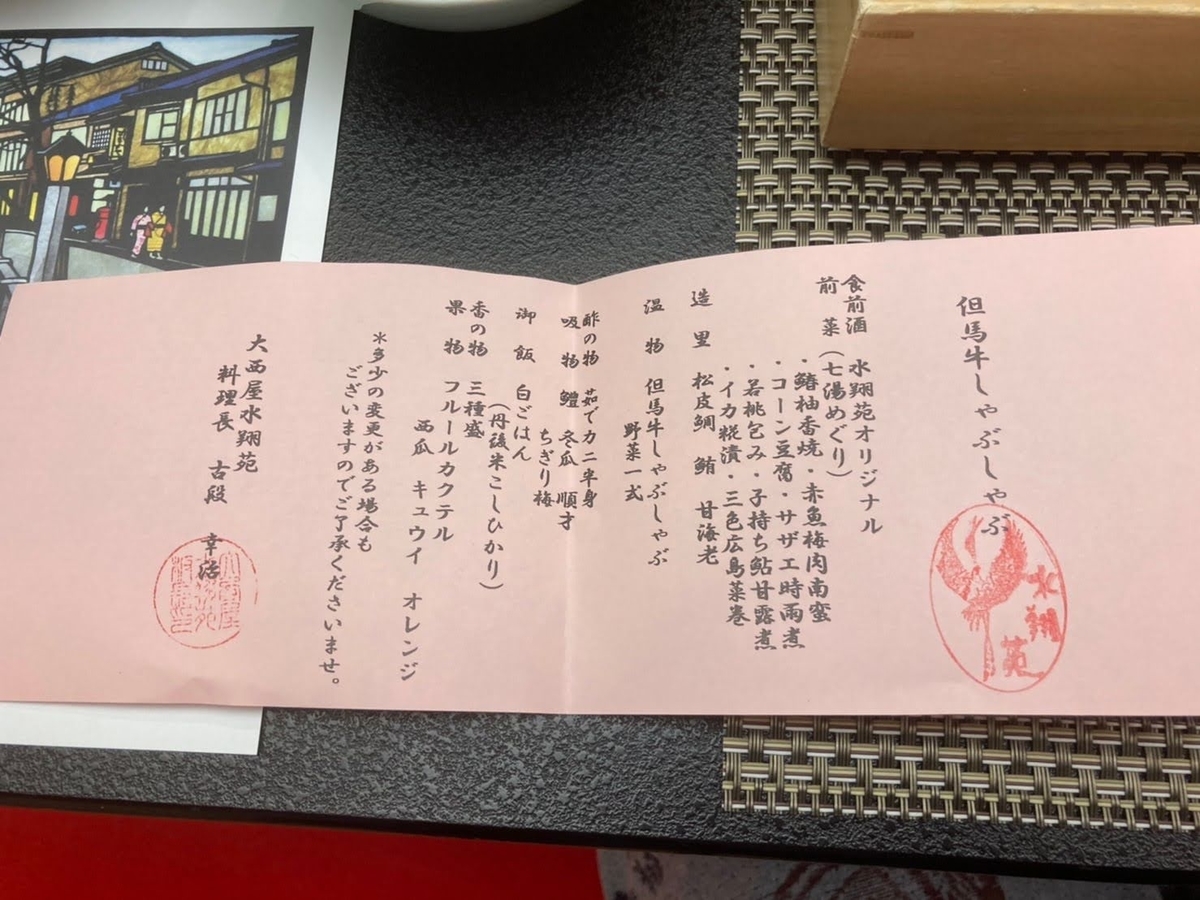 但馬牛しゃぶしゃぶ
水翔苑
食前酒 水翔苑オリジナル
前菜(七湯めぐり)
・鰆柚香焼・赤魚梅肉南蛮
・コーン豆腐・サザエ時雨煮
・若桃包み・子持ち鮎甘露煮
・イカ糀漬・三色広島菜巻
造里 松皮鯛 鮪 甘海老
温物 但馬牛しゃぶしゃぶ
野菜一式
酢の物 茹でカニ半身
吸物 鱧 冬瓜 順才
ちぎり梅
御飯 白ごはん
(丹後米こしひかり)
香の物 三種盛
果物 フルールカクテル
西瓜 キュウイ オレンジ
*多少の変更がある場合も
ございますのでご了承くださいませ。
大西屋水翔苑
料理長 古段 幸治